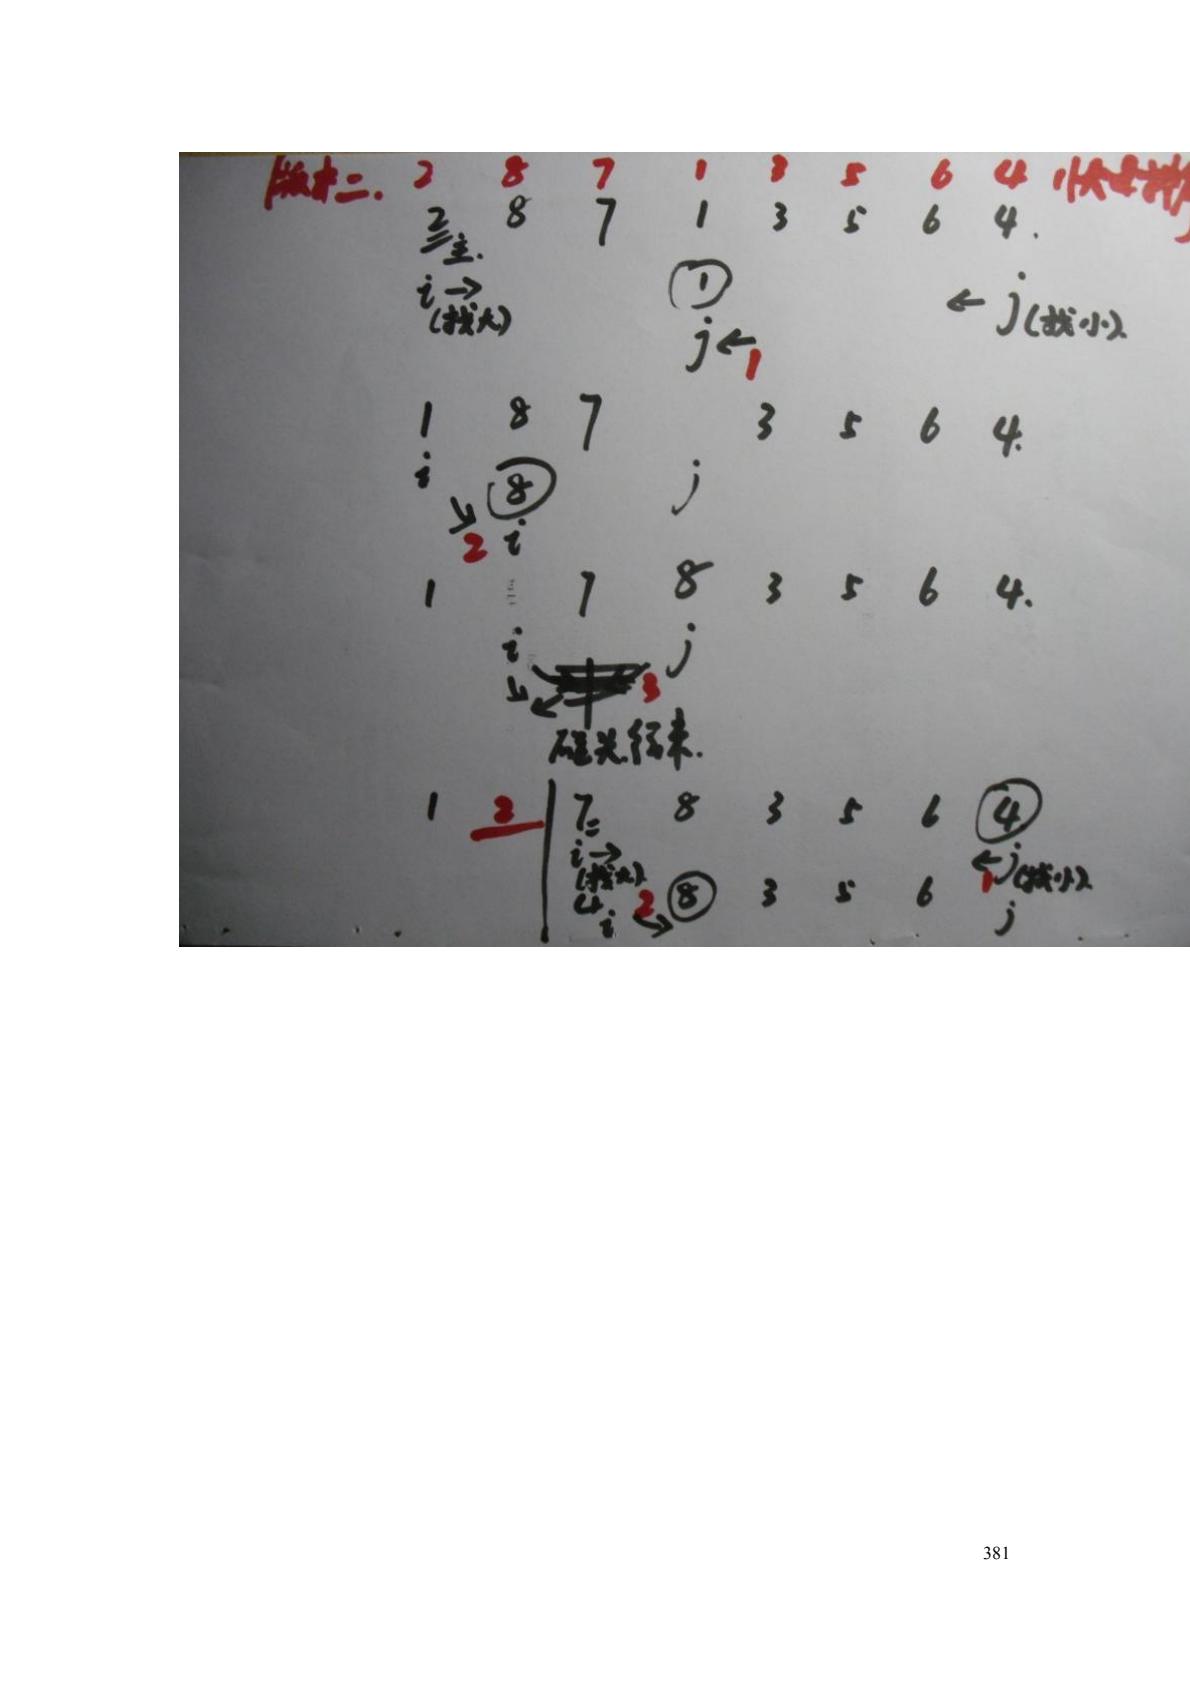 版本二. 2 8 7 1 3 5 6 4
2 8 7 1 3 5 6 4.
主.
i → ① ← j(找小)
(找大)
j ← 1
1 8 7 3 5 6 4.
i ⑧ j
2 i
1 7 8 3 5 6 4.
i j
3
碰头.结束.
1 2 7 8 3 5 6 ④
i → ← j(找小)
(找大) 1
4 2 ⑧ 3 5 6
i j
381